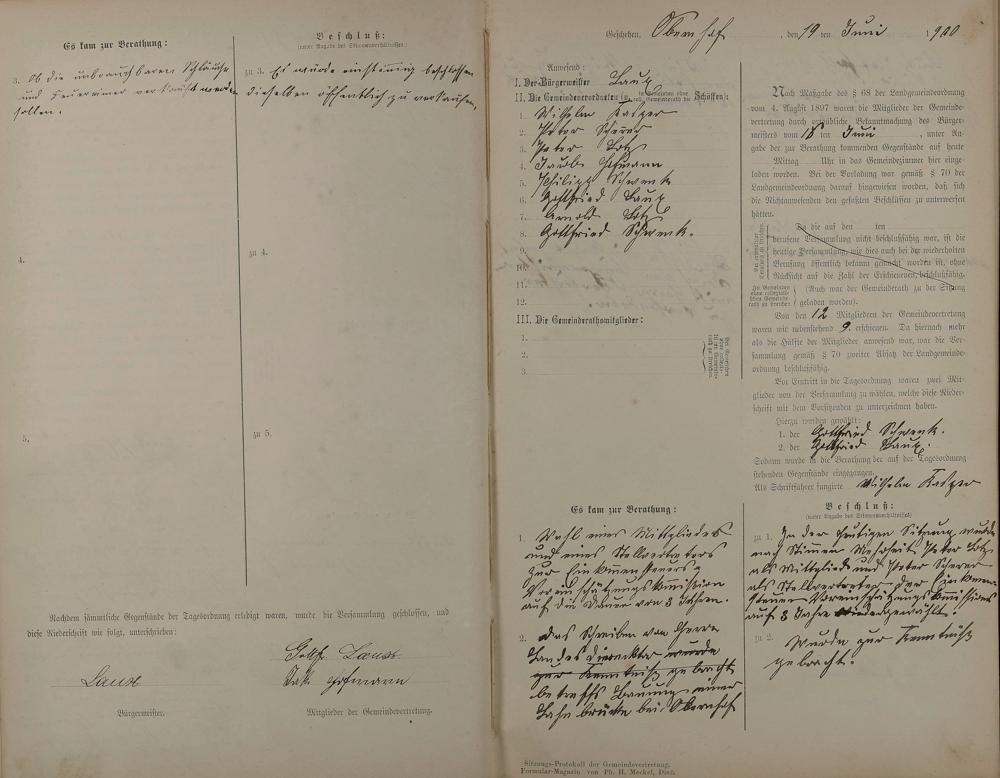 Es kam zur Berathung:
Beschluß:
(unter Angabe des Stimmenverhältnisses)
3. Ob die unbrauchbaren Schläuche
und Feuereimer verkauft werden
sollen.
zu 3. Es wurde einstimmig beschlossen
dieselben öffentlich zu verkaufen.
4.
zu 4.
5.
zu 5.
Nachdem sämmtliche Gegenstände der Tagesordnung erledigt waren, wurde die Versammlung geschlossen, und
diese Niederschrift wie folgt, unterschrieben:
Gottfr. Laux
Laux
Jak. Hofmann
Bürgermeister.
Mitglieder der Gemeindevertretung.
Geschehen, Obernhof, den 19 ten Juni 1900
Anwesend:
I. Der Bürgermeister Laux
II. Die Gemeindeverordneten (u. in Gemeinden ohne coll. Gemeinderath die Schöffen):
1. Wilhelm Kasper
2. Peter Scherer
3. Peter Lotz
4. Jacob Hofmann
5. Philipp Schwenk
6. Gottfried Laux
7. Arnold Lotz
8. Gottfried Schwenk.
9.
10.
11.
12.
III. Die Gemeinderathsmitglieder:
1.
2.
3.
Nach Maßgabe des § 68 der Landgemeindeordnung
vom 4. August 1897 waren die Mitglieder der Gemeinde-
vertretung durch ortsübliche Bekanntmachung des Bürger-
meisters vom 18 ten Juni, unter An-
gabe der zur Berathung kommenden Gegenstände auf heute
Mittag Uhr in das Gemeindezimmer hier einge-
laden worden. Bei der Vorladung war gemäß § 70 der
Landgemeindeordnung darauf hingewiesen worden, daß sich
die Nichtanwesenden den gefaßten Beschlüssen zu unterwerfen
hätten.
Da die auf den ten
berufene Versammlung nicht beschlußfähig war, ist die
heutige Versammlung, wie dies auch bei der wiederholten
Berufung öffentlich bekannt gemacht worden ist, ohne
Rücksicht auf die Zahl der Erschienenen, beschlußfähig.
In Gemeinden
ohne collegiali-
schen Gemeinde-
rath zu streichen
(Auch war der Gemeinderath zu der Sitzung
geladen worden).
Von den 12 Mitgliedern der Gemeindevertretung
waren wie nebenstehend 9. erschienen. Da hiernach mehr
als die Hälfte der Mitglieder anwesend war, war die Ver-
sammlung gemäß § 70 zweiter Absatz der Landgemeinde-
ordnung beschlußfähig.
Vor Eintritt in die Tagesordnung waren zwei Mit-
glieder von der Versammlung zu wählen, welche diese Nieder-
schrift mit dem Vorsitzenden zu unterzeichnen haben.
Hierzu wurden gewählt:
1. der Gottfried Schwenk.
2. der Gottfried Laux.
Sodann wurde in die Berathung der auf der Tagesordnung
stehenden Gegenstände eingegangen.
Als Schriftführer fungirte Wilhelm Kasper
Es kam zur Berathung:
1. Wahl eines Mittgliedes
und eines Stellvertreters
zur Einkommensteuer
Voreinschätzungskommission
auf die Dauer von 3 Jahren.
2. Das Schreiben von Herrn
Landesdirecktor wurde
zur Kenntniß gebracht
betreffs Bauung einer
Lahnbrücke bei Obernhof
Beschluß:
(unter Angabe des Stimmenverhältnisses)
zu 1. In der heutigen Sitzung wurde
nach Stimmen Mehrheit Peter Lotz
als Mittglied und Peter Scherer
als Stellvertreter der Einkommen
steuer Voreinschätzungskommission
auf 3 Jahre wiedergewählt.
zu 2. Wurde zur Kenntniß
gebracht.
Sitzungs-Protokoll der Gemeindevertretung.
Formular-Magazin von Ph. H. Meckel, Diez.